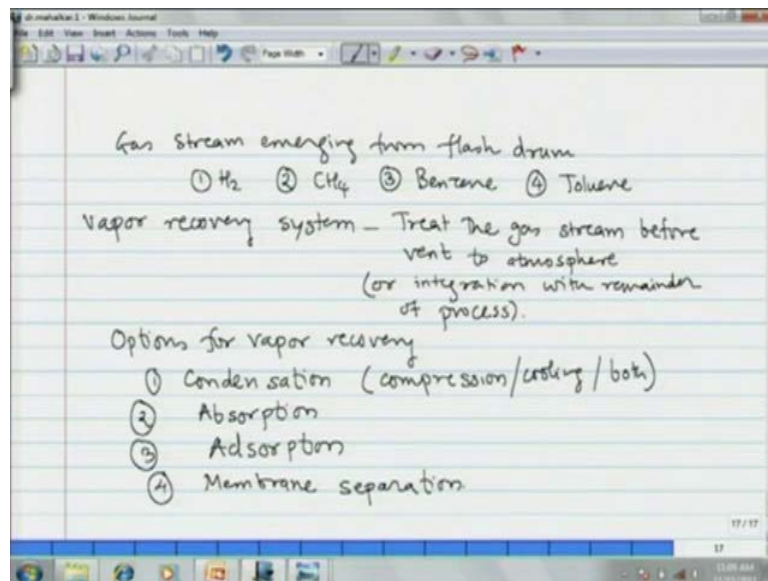 dr.mahalkar.1 - Windows Journal
File Edit View Insert Actions Tools Help
Page Width
Gas stream emerging from flash drum
① H2 ② CH4 ③ Benzene ④ Toluene
Vapor recovery system – Treat the gas stream before
vent to atmosphere
(or integration with remainder
of process).
Options for vapor recovery
① Condensation (compression/cooling/both)
② Absorption
③ Adsorption
④ Membrane separation
17/17
17